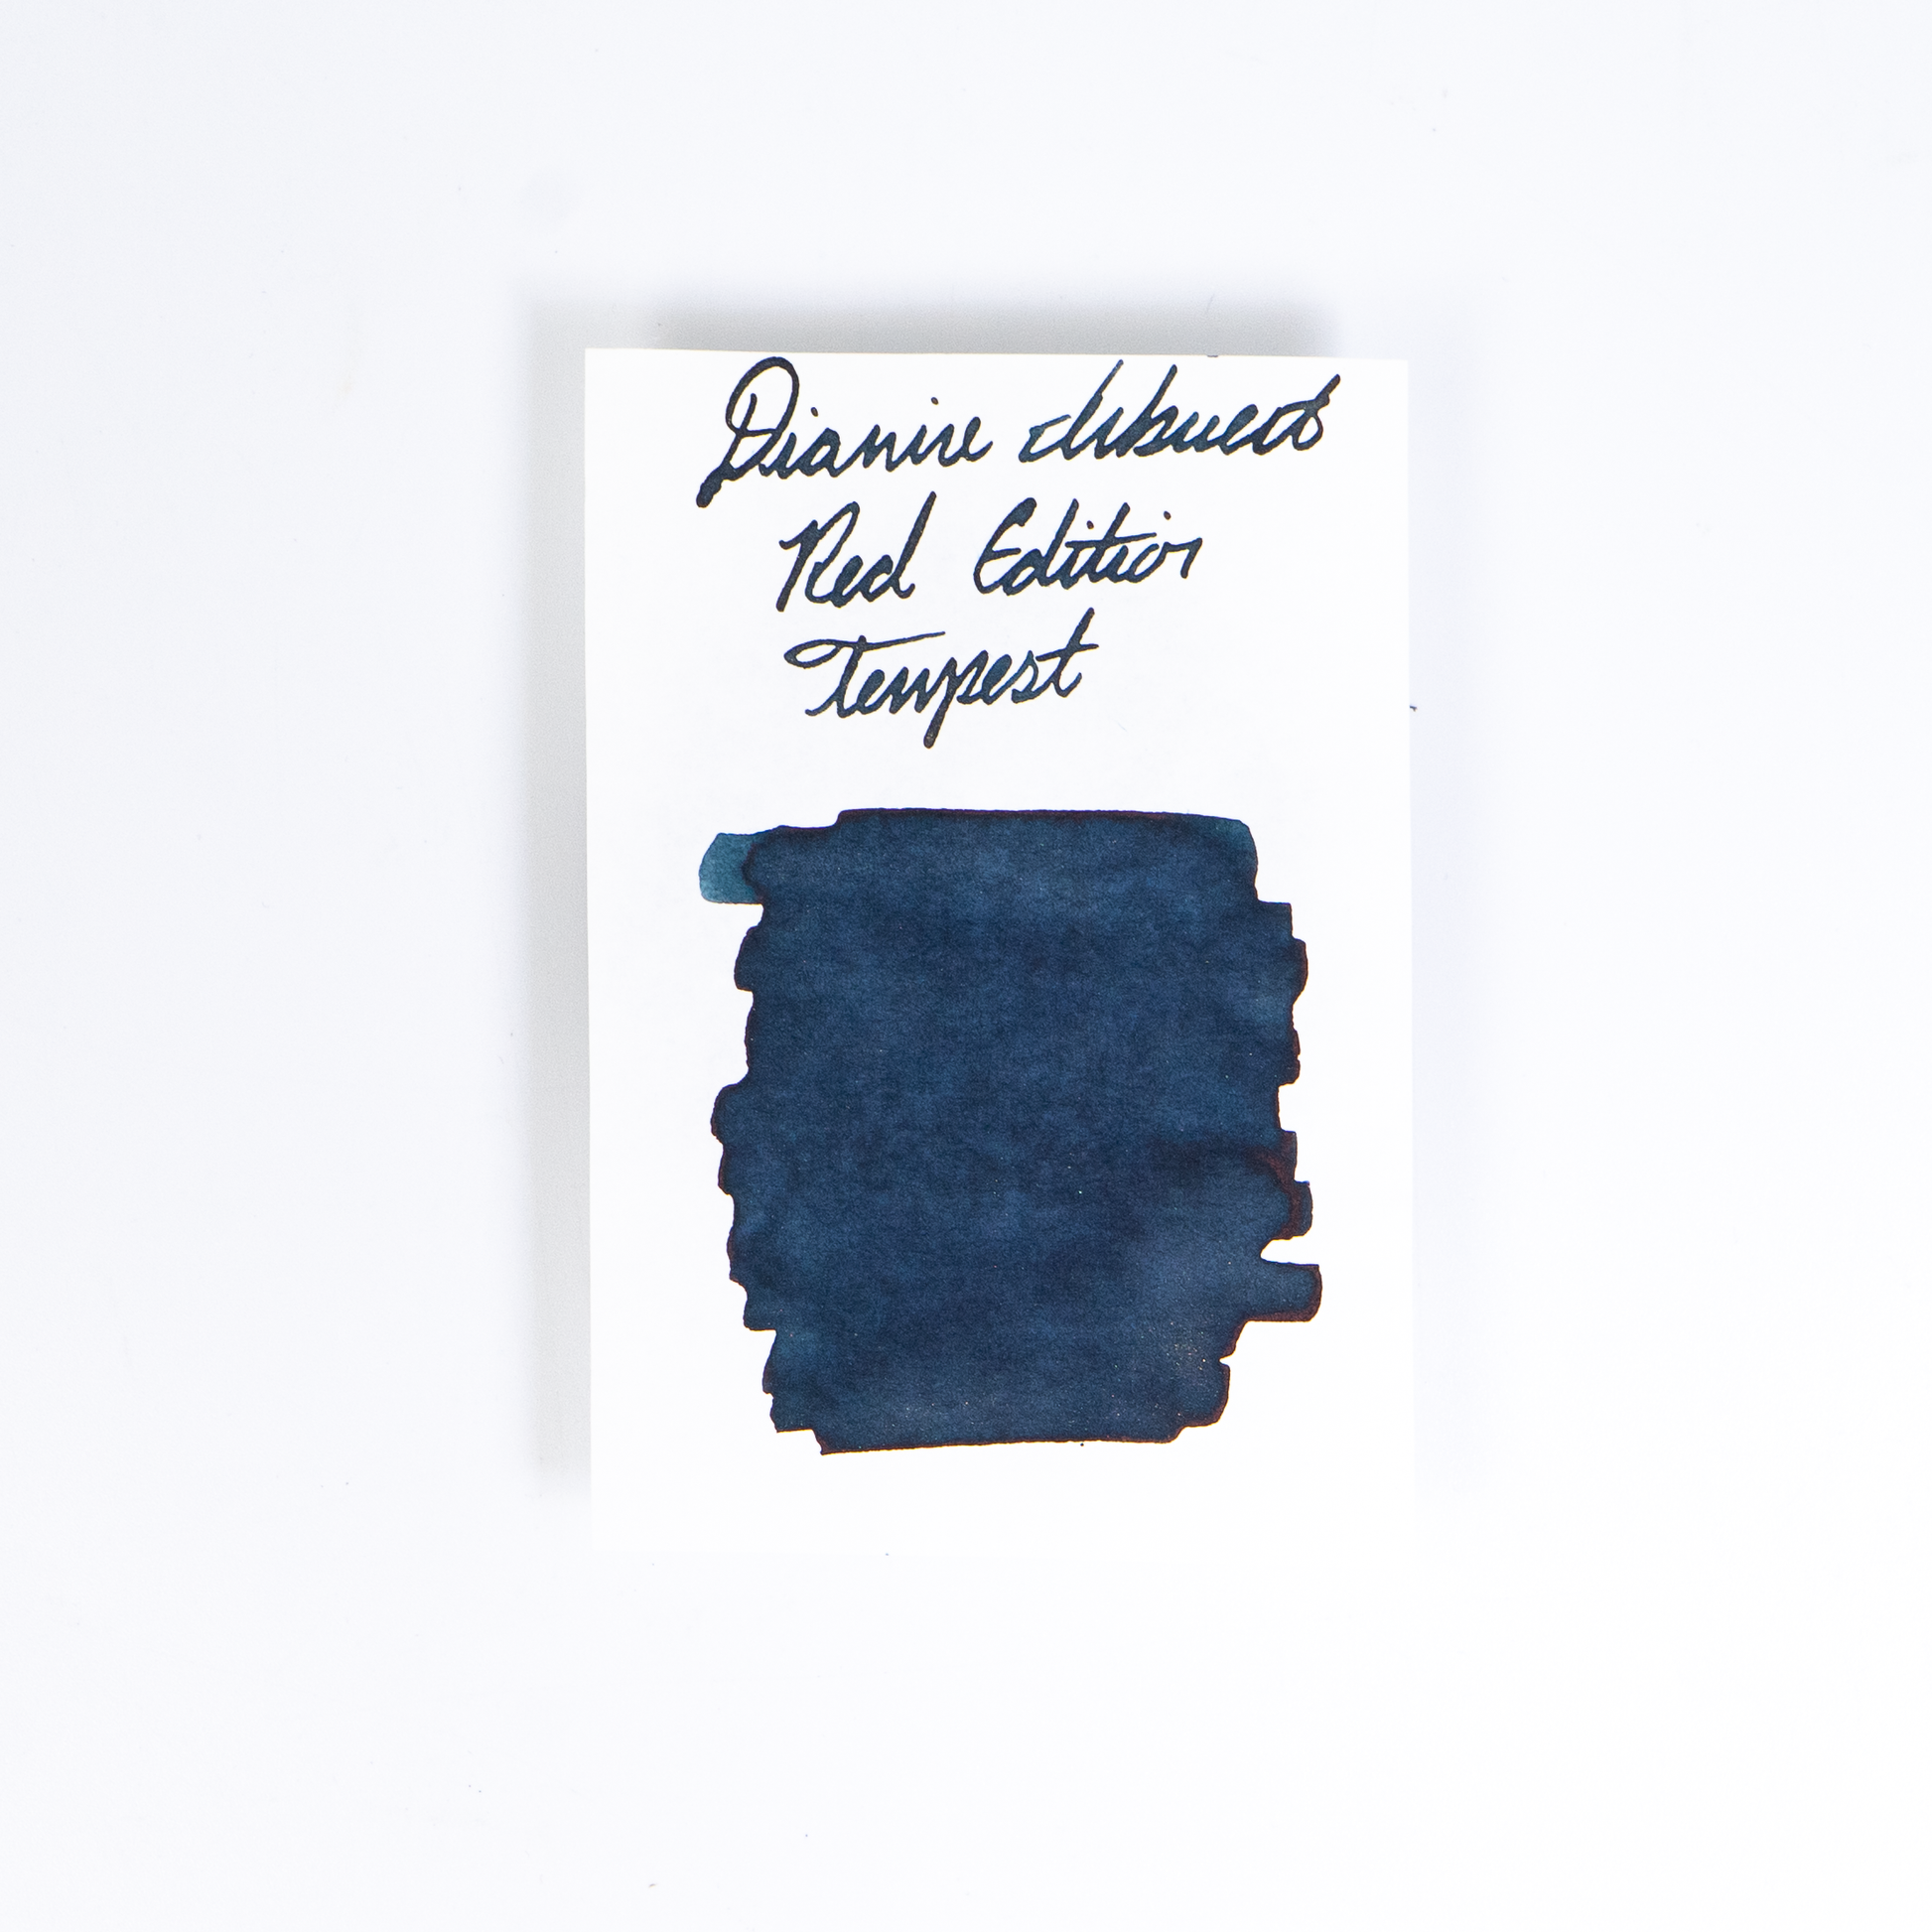 Diamine Inkvent
Red Edition
Tempest